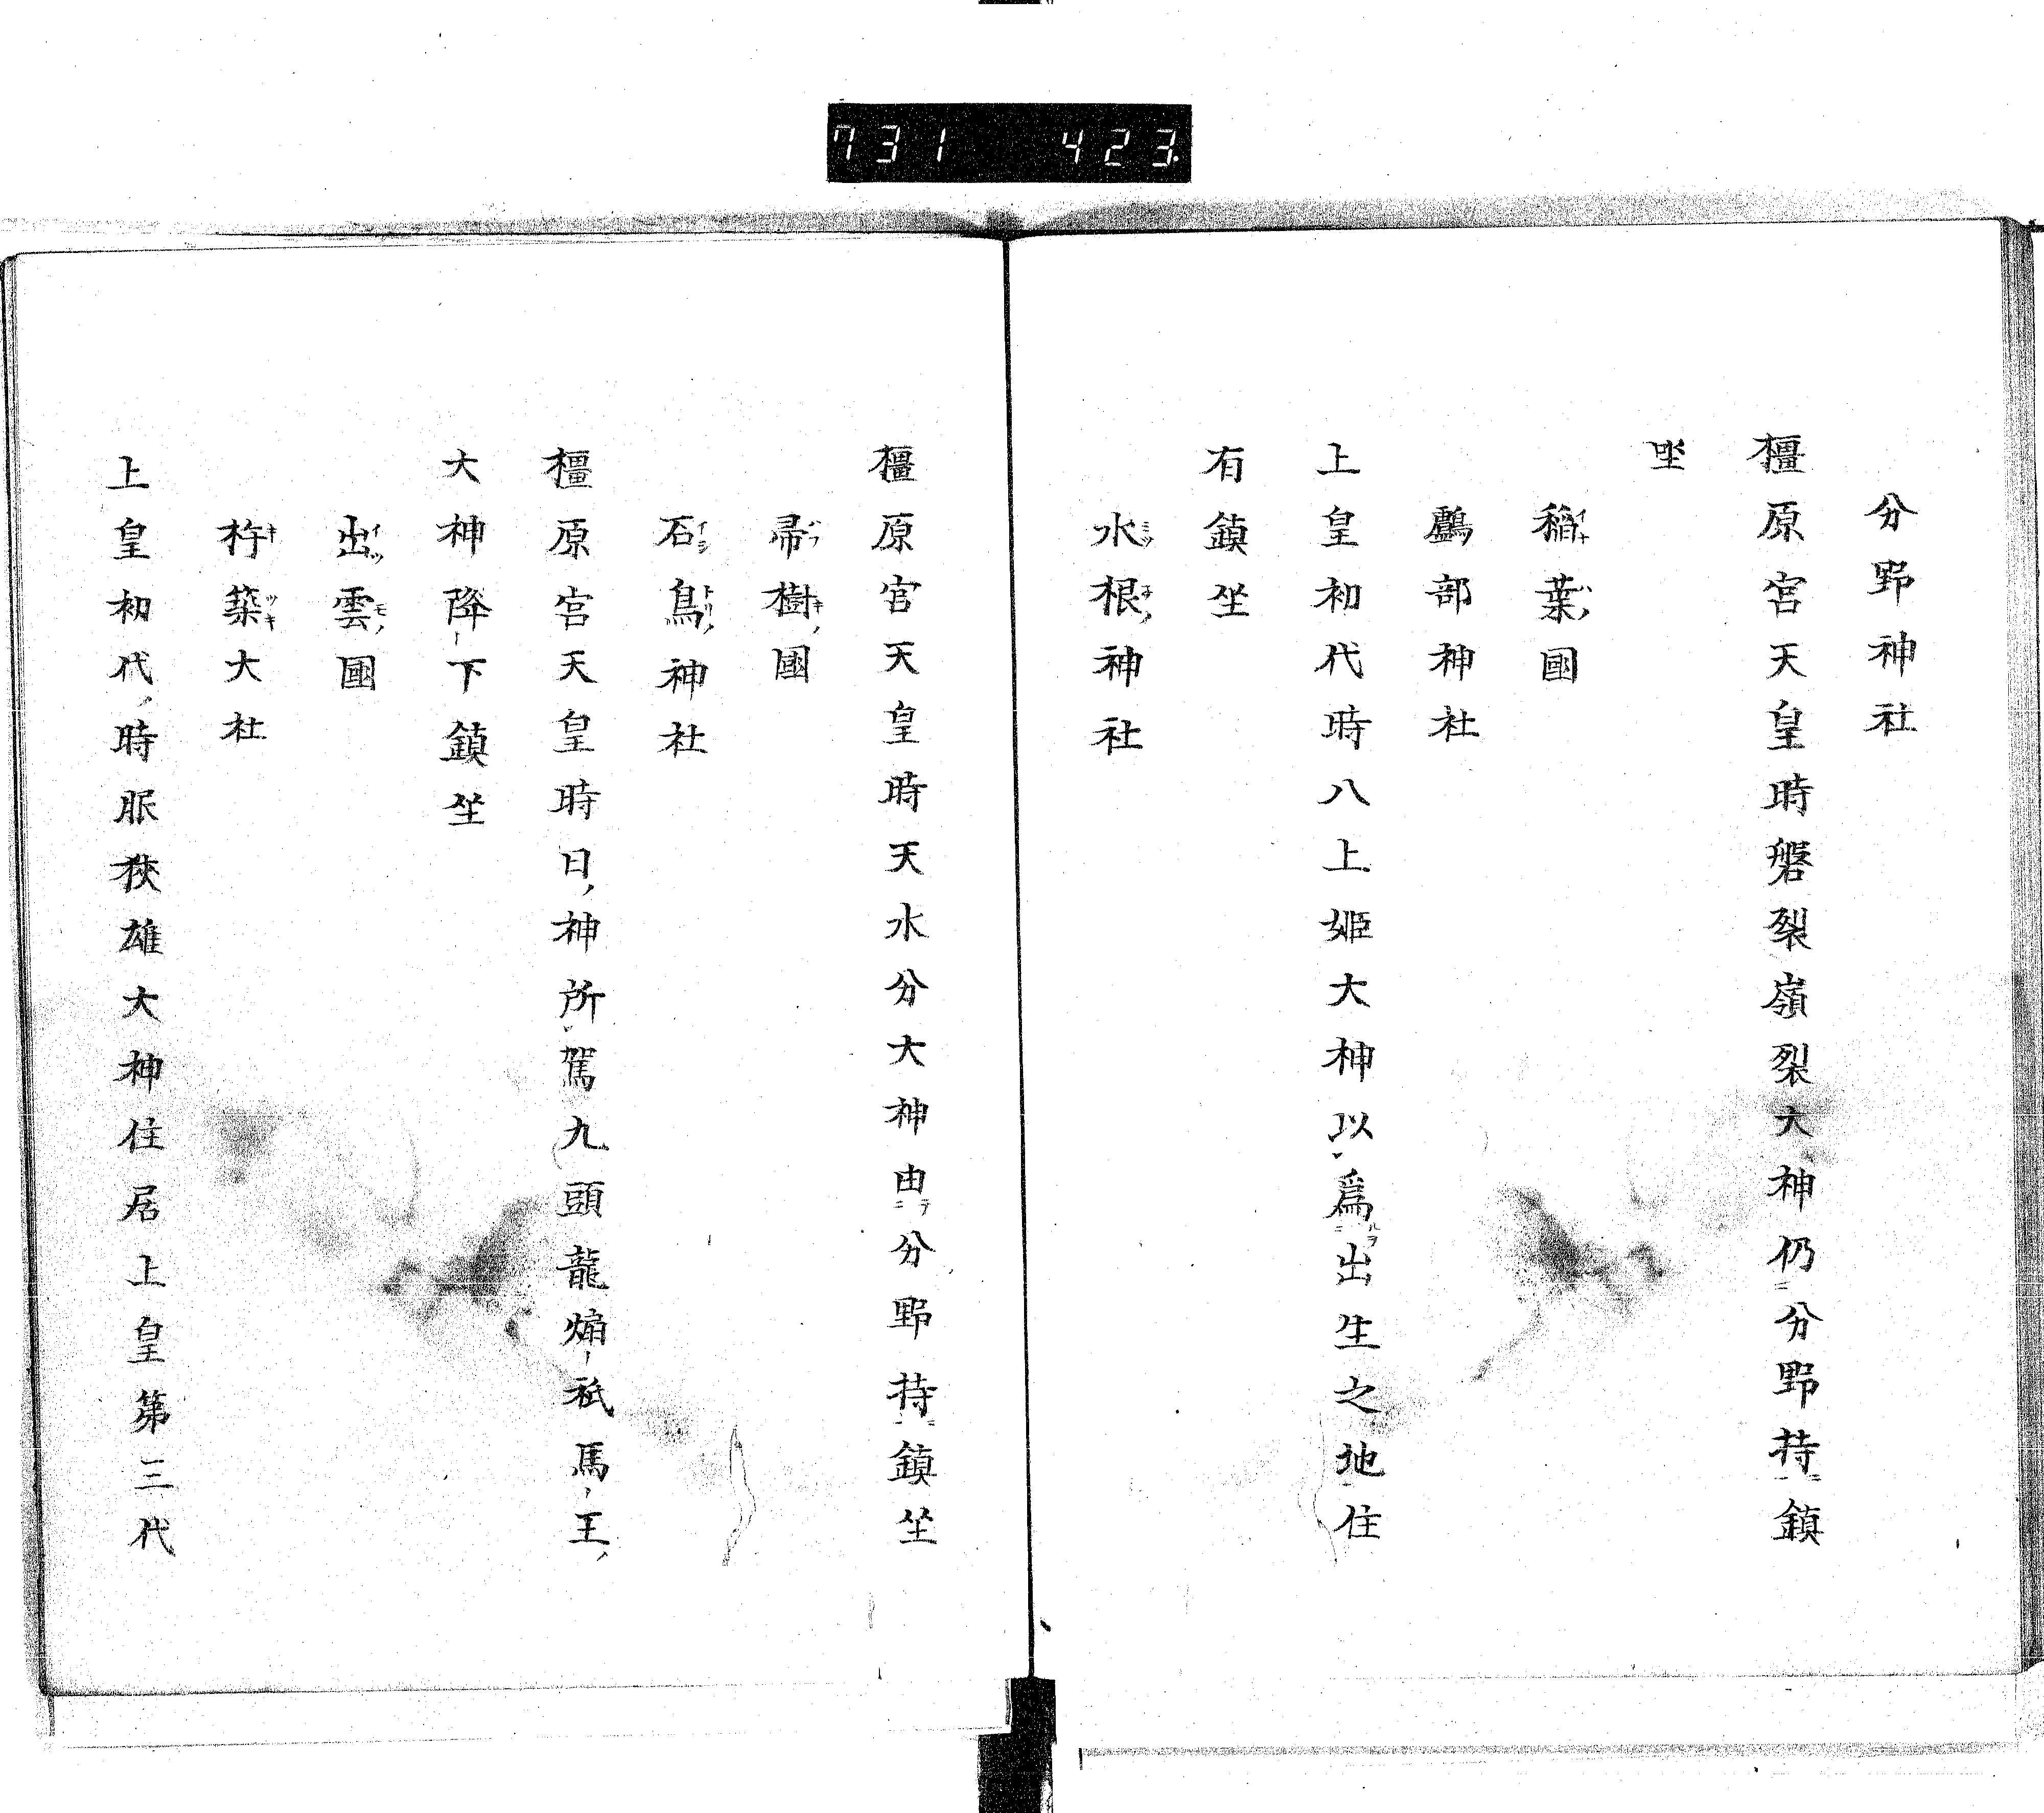 731 423
分野神社
橿原宮天皇時磐裂嶺裂大神仍分野持鎮
坐
稲葉國
鸕部神社
上皇初代時八上姫大神以爲出生之地住
有鎮坐
水根神社
橿原宮天皇時天水分大神由分野持鎮坐
帚樹國
石鳥神社
橿原宮天皇時日神所駕九頭龍煽祇馬王
大神降下鎮坐
出雲國
杵築大社
上皇初代時脤狹雄大神住居上皇第三代